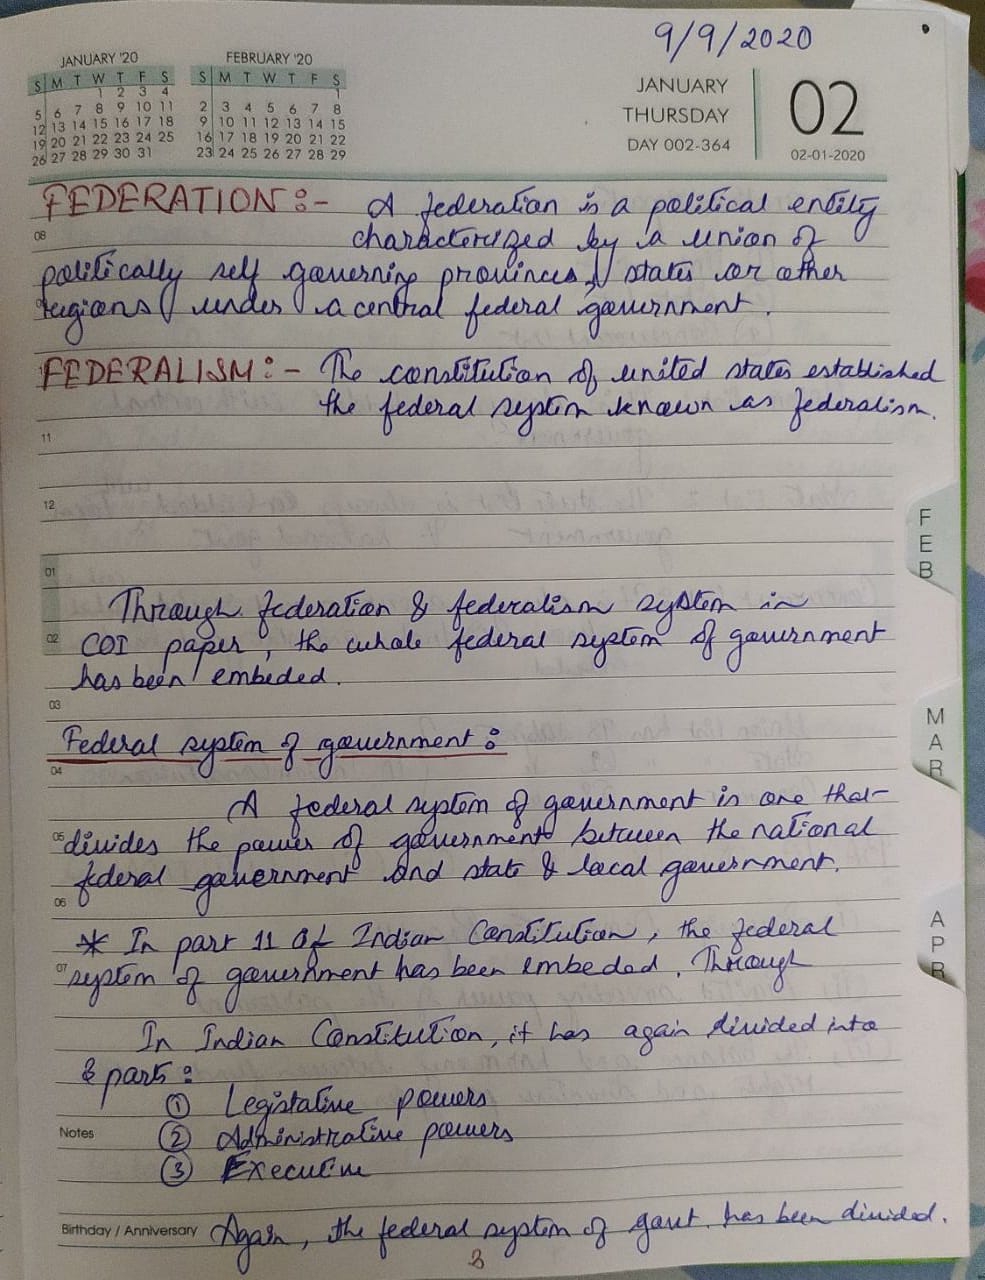 9/9/2020
JANUARY '20
S M T W T F S
1 2 3 4
5 6 7 8 9 10 11
12 13 14 15 16 17 18
19 20 21 22 23 24 25
26 27 28 29 30 31
FEBRUARY '20
S M T W T F S
1
2 3 4 5 6 7 8
9 10 11 12 13 14 15
16 17 18 19 20 21 22
23 24 25 26 27 28 29
JANUARY
THURSDAY
DAY 002-364
02
02-01-2020
FEDERATION :- A federation is a political entity
08
characterized by a union of
politically self governing provinces, states or other
regions under a central federal government.
FEDERALISM :- The constitution of united states established
the federal system known as federalism.
11
12
01
Through federation & federalism system in
02 COI paper, the whole federal system of government
has been embeded.
03
Federal system of government :
04
A federal system of government is one that
05 divides the power of government between the national
federal government and state & local government.
06
* In part 11 of Indian Constitution, the federal
07 system of government has been embeded. Through
In Indian Constitution, it has again divided into
parts :
① Legistative powers
Notes ② Administrative powers
③ Executive
Birthday / Anniversary Again, the federal system of govt. has been divided.
3
FEB
MAR
APR